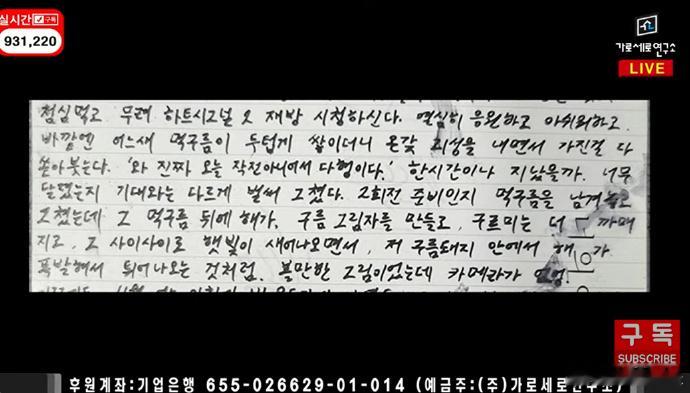 실시간 구독
931,220
가로세로연구소
LIVE
점심먹고 무려 하트시그널 2 재방 시청하신다. 열심히 응원하고 아쉬워하고.
바깥엔 어느새 먹구름이 두텁게 쌓이더니 온갖 괴성을 내면서 가진걸 다
쏟아붓는다. '와 진짜 오늘 작전아니어서 다행이다.' 한시간이나 지났을까. 너무
달렸는지 기대와는 다르게 벌써 그쳤다. 2회전 준비인지 먹구름을 남겨놓고
그쳤는데 그 먹구름 뒤에 해가, 구름 그림자를 만들고, 구르미는 더 까매
지고, 그 사이사이로 햇빛이 새어나오면서, 저 구름돼지 안에서 해가
폭발해서 튀어나오는 것처럼. 볼만한 그림이었는데 카메라가
구독
SUBSCRIBE
후원계좌:기업은행 655-026629-01-014 (예금주:(주)가로세로연구소)